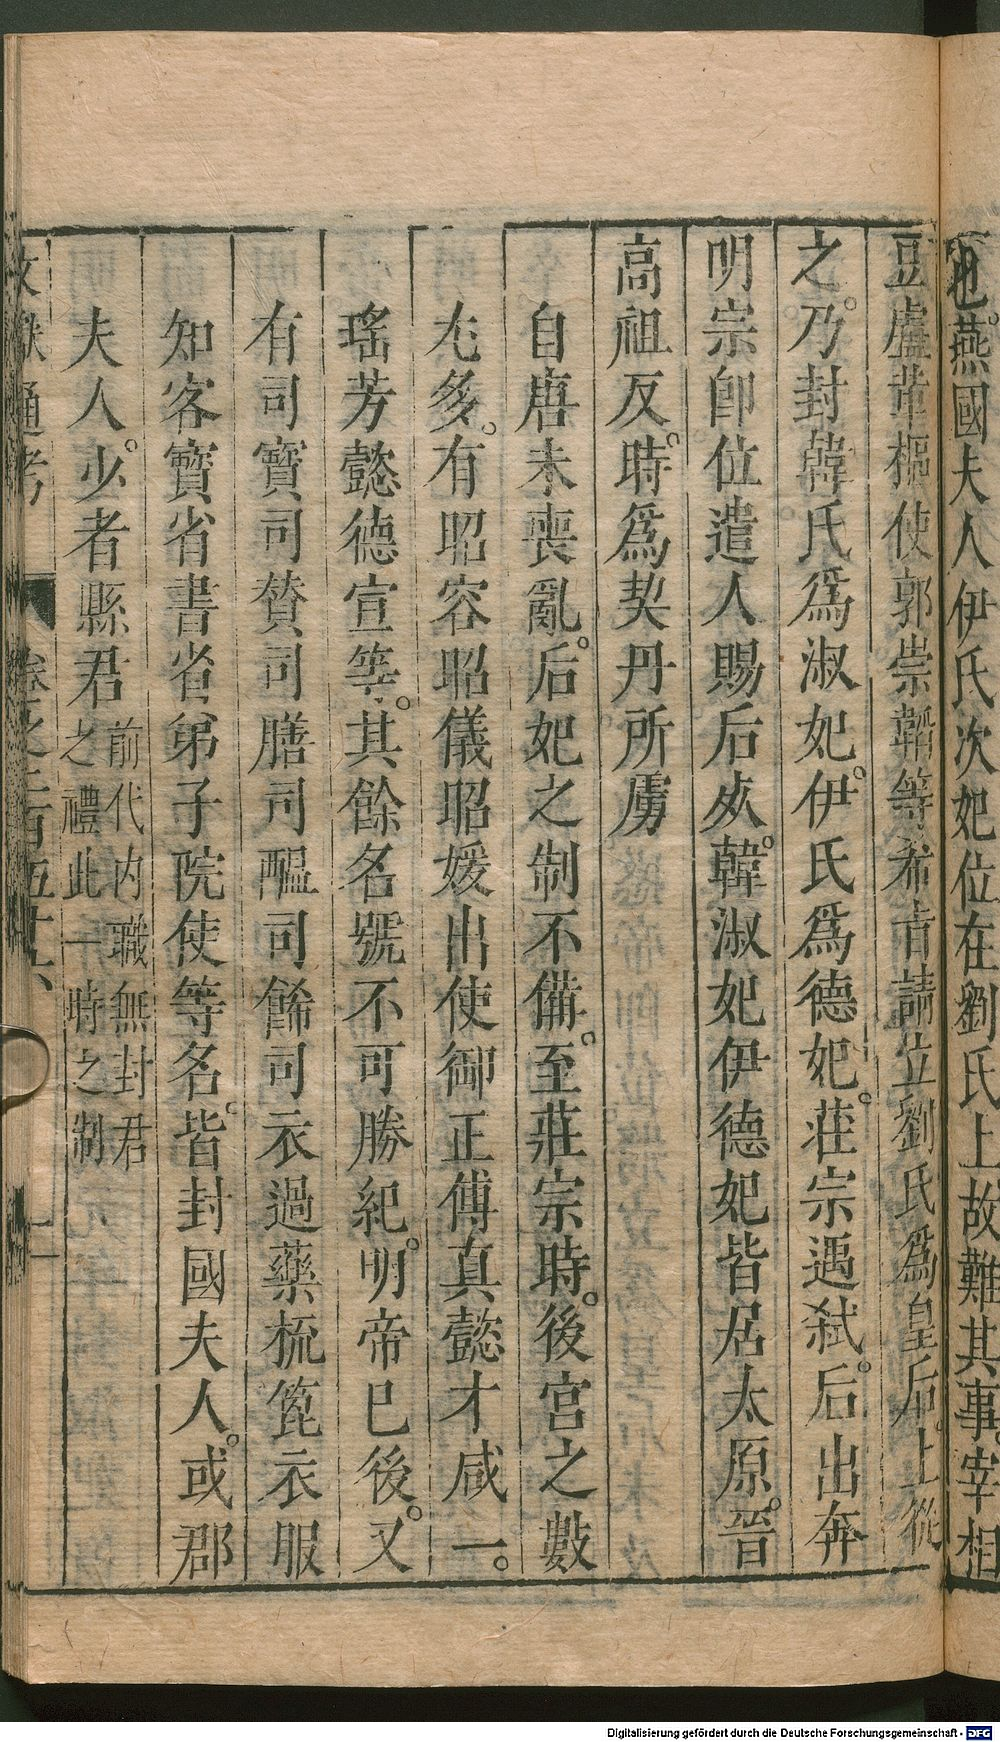 也燕國夫人伊氏次妃位在劉氏上故難其事宰相
豆盧革樞使郭崇韜等希㫖請立劉氏爲皇后上從
之乃封韓氏爲淑妃伊氏爲德妃莊宗遇弑后出奔
明宗卽位遣人賜后死韓淑妃伊德妃皆居太原晉
高祖反時爲契丹所虜
自唐末喪亂后妃之制不備至莊宗時後宮之數
尤多有昭容昭儀昭媛出使御正傅真懿才咸一
瑤芳懿德宣等其餘名號不可勝紀明帝巳後又
有司寳司贊司膳司醞司餙司衣過藥梳篦衣服
知客寳省書省弟子院使等名皆封國夫人或郡
夫人少者縣君前代内職無封君
之禮此一時之制
文獻通考 卷之二百五十六 十一
Digitalisierung gefördert durch die Deutsche Forschungsgemeinschaft - DFG